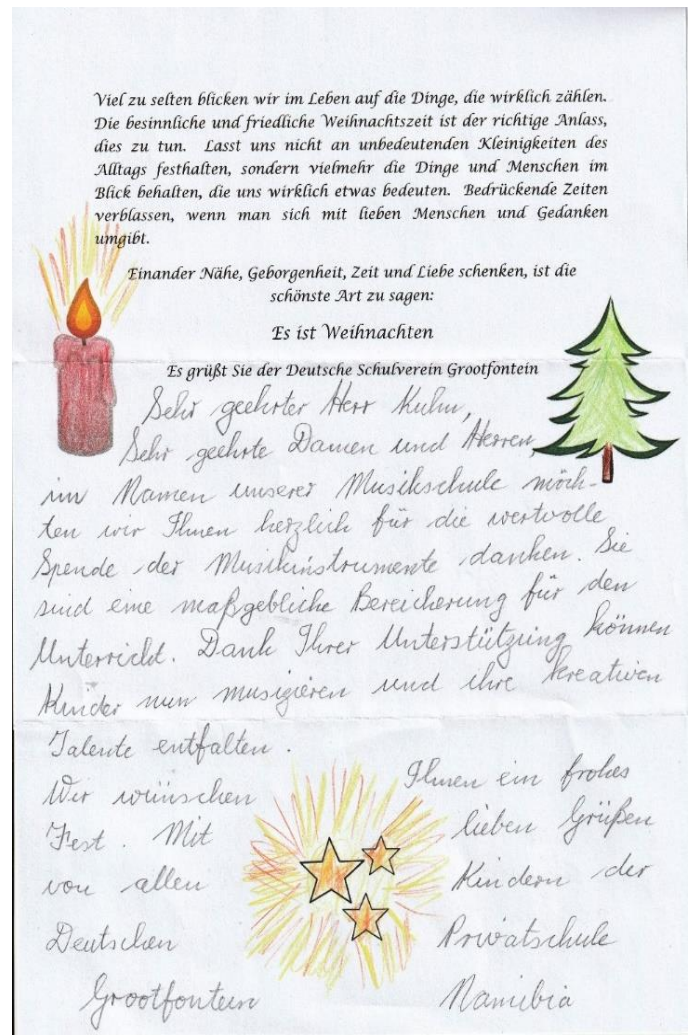 Viel zu selten blicken wir im Leben auf die Dinge, die wirklich zählen.
Die besinnliche und friedliche Weihnachtszeit ist der richtige Anlass,
dies zu tun. Lasst uns nicht an unbedeutenden Kleinigkeiten des
Alltags festhalten, sondern vielmehr die Dinge und Menschen im
Blick behalten, die uns wirklich etwas bedeuten. Bedrückende Zeiten
verblassen, wenn man sich mit lieben Menschen und Gedanken
umgibt.
Einander Nähe, Geborgenheit, Zeit und Liebe schenken, ist die
schönste Art zu sagen:
Es ist Weihnachten
Es grüßt Sie der Deutsche Schulverein Grootfontein
Sehr geehrter Herr Kuhn,
Sehr geehrte Damen und Herren,
im Namen unserer Musikschule möch-
ten wir Ihnen herzlich für die wertvolle
Spende der Musikinstrumente danken. Sie
sind eine maßgebliche Bereicherung für den
Unterricht. Dank Ihrer Unterstützung können
Kinder nun musizieren und ihre kreativen
Talente entfalten.
Wir wünschen Ihnen ein frohes
Fest. Mit lieben Grüßen
von allen Kindern der
Deutschen Privatschule
Grootfontein Namibia